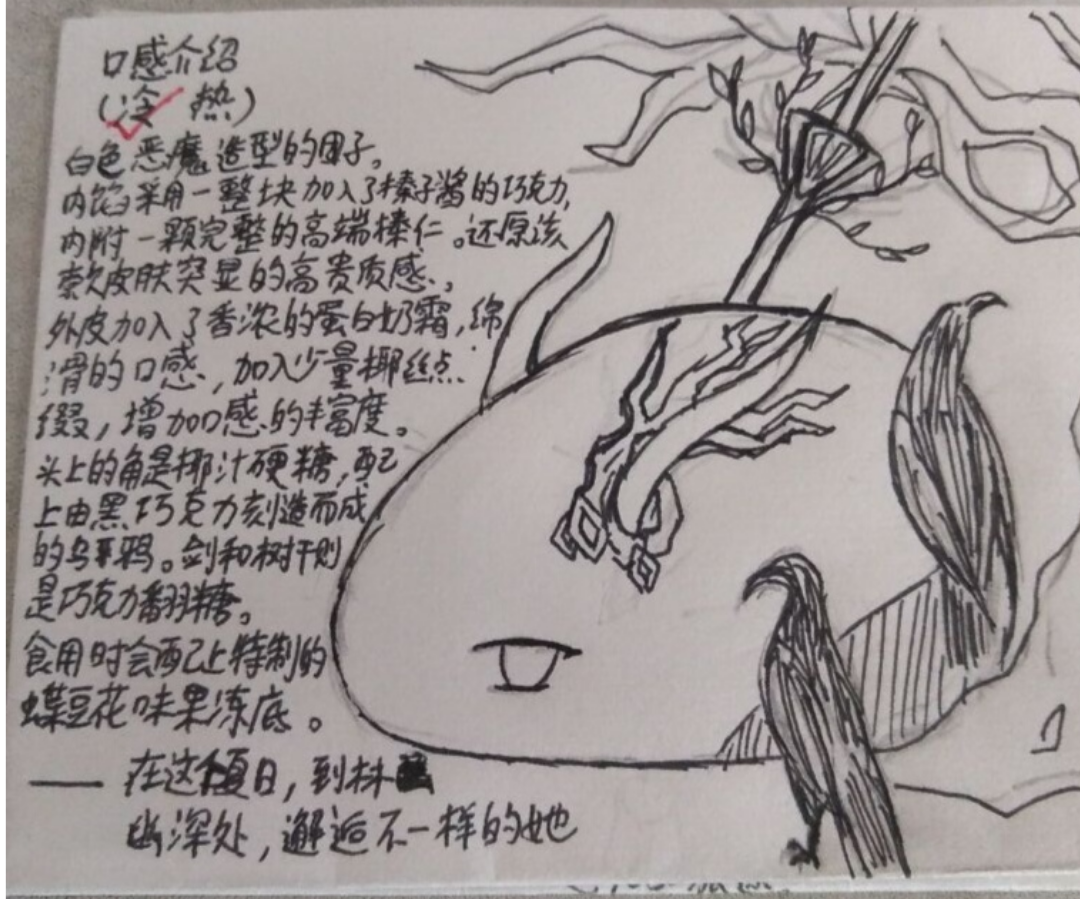 口感介绍
(冷 热)
白色恶魔造型的团子,
内馅采用一整块加入了榛子酱的巧克力,
内附一颗完整的高端榛仁。还原该
款皮肤突显的高贵质感。,
外皮加入了香浓的蛋白奶霜,绵
滑的口感,加入少量椰丝点
缀,增加口感的丰富度。
头上的角是椰汁硬糖,配
上由黑巧克力刻造而成
的乌鸦。剑和树干则
是巧克力翻糖。
食用时会配上特制的
蝶豆花味果冻底。
—— 在这夏日,到林
幽深处,邂逅不一样的她